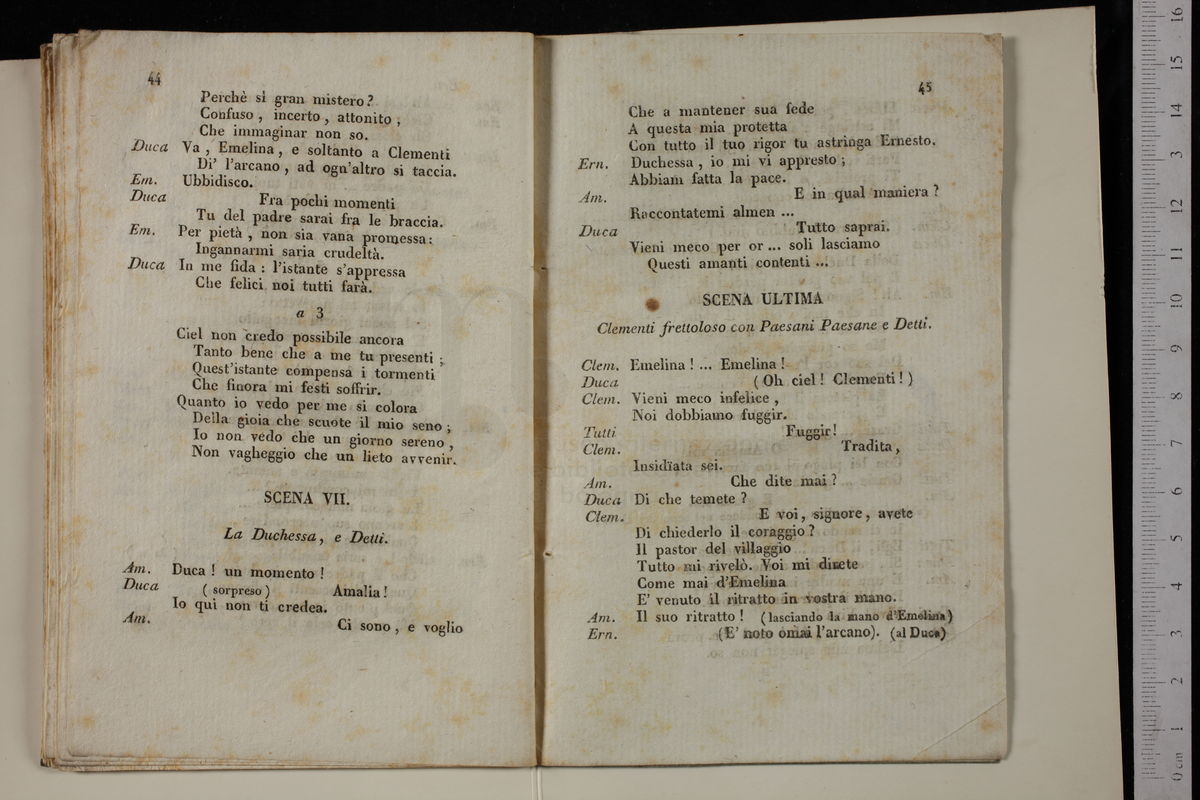 44
Perchè sì gran mistero?
Confuso, incerto, attonito,
Che immaginar non so.
Duca Va, Emelina, e soltanto a Clementi
Di' l'arcano, ad ogn'altro si taccia.
Em. Ubbidisco.
Duca Fra pochi momenti
Tu del padre sarai fra le braccia.
Em. Per pietà, non sia vana promessa:
Ingannarmi saria crudeltà.
Duca In me fida: l'istante s'appressa
Che felici noi tutti farà.
a 3
Ciel non credo possibile ancora
Tanto bene che a me tu presenti;
Quest'istante compensa i tormenti
Che finora mi festi soffrir.
Quanto io vedo per me si colora
Della gioia che scuote il mio seno;
Io non vedo che un giorno sereno,
Non vagheggio che un lieto avvenir.
SCENA VII.
La Duchessa, e Detti.
Am. Duca! un momento!
Duca (sorpreso) Amalia!
Io qui non ti credea.
Am. Ci sono, e voglio
45
Che a mantener sua fede
A questa mia protetta
Con tutto il tuo rigor tu astringa Ernesto.
Ern. Duchessa, io mi vi appresto;
Abbiam fatta la pace.
Am. E in qual maniera?
Raccontatemi almen ...
Duca Tutto saprai.
Vieni meco per or ... soli lasciamo
Questi amanti contenti ...
SCENA ULTIMA
Clementi frettoloso con Paesani Paesane e Detti.
Clem. Emelina! ... Emelina!
Duca (Oh ciel! Clementi!)
Clem. Vieni meco infelice,
Noi dobbiamo fuggir.
Tutti Fuggir!
Clem. Tradita,
Insidïata sei.
Am. Che dite mai?
Duca Di che temete?
Clem. E voi, signore, avete
Di chiederlo il coraggio?
Il pastor del villaggio
Tutto mi rivelò. Voi mi direte
Come mai d'Emelina
E' venuto il ritratto in vostra mano.
Am. Il suo ritratto! (lasciando la mano d'Emelina)
Ern. (E' noto omai l'arcano). (al Duca)
0 cm 1 2 3 4 5 6 7 8 9 10 11 12 13 14 15 16